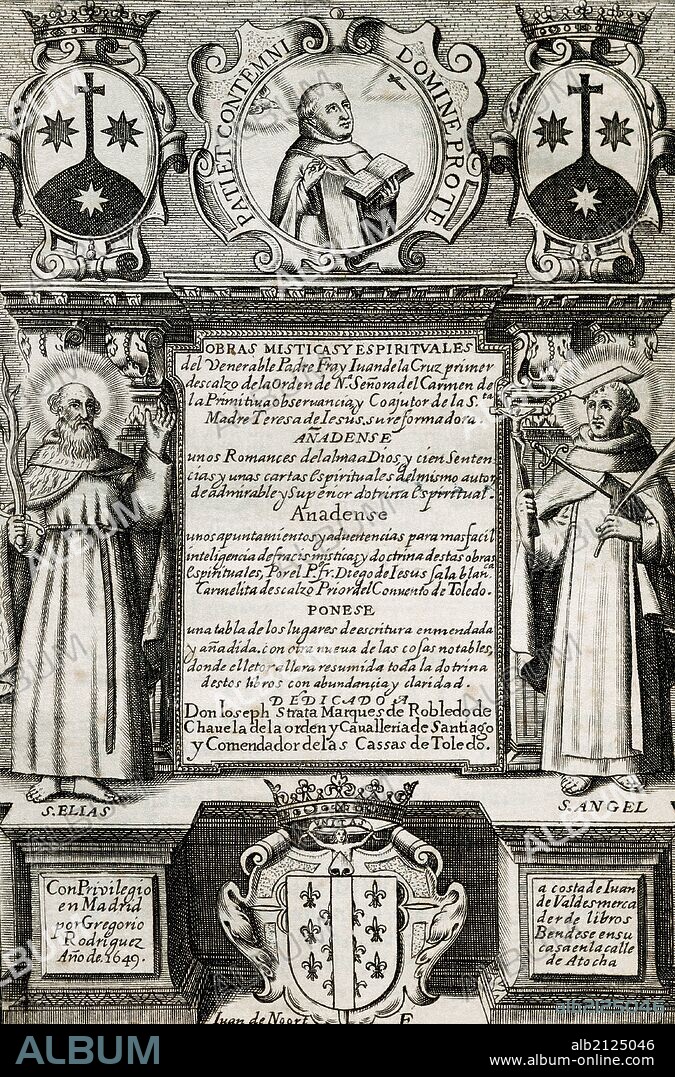 PATI ET CONTEMNI DOMINE PRO TE
OBRAS MISTICAS Y ESPIRITVALES
del Venerable Padre Fray Iuan de la Cruz primer
descalzo de la Orden de N. Señora del Carmen de
la Primitiua obseruancia, y Coajutor de la S.ta
Madre Teresa de Iesus, su reformadora.
AÑADENSE
unos Romances del alma a Dios y cien Senten
cias y unas cartas Espirituales del mismo autor
de admirable y Superior dotrina Espiritual.
Anadense
unos apuntamientos y aduertencias para mas facil
inteligencia de fracis misticas y doctrina destas obras
Espirituales, Por el P. Fr. Diego de Iesus salablan.ca
Carmelita descalzo Prior del Conuento de Toledo.
PONESE
una tabla de los lugares de escritura enmendada
y añadida. con otra nueva de las cosas notables,
donde el letor allara resumida toda la dotrina
destos libros con abundançia y claridad.
DEDICADO A
Don Ioseph Strata Marques de Robledo de
Chauela de la orden y Cauallería de Santiago
y Comendador de las Cassas de Toledo.
S. ELIAS
S. ANGEL
Con Privilegio
en Madrid
por Gregorio
Rodriguez
Año de. 1649.
a costa de Iuan
de Valdes merca
der de libros
Bendese en su
casa en la calle
de Atocha
Iuan de Noort F
ALBUM
alb2125046
www.album-online.com